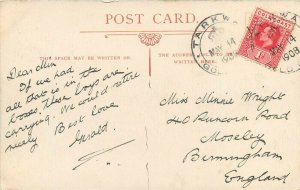 POST CARD.
THIS SPACE MAY BE WRITTEN ON.
THE ADDRESS
TARKWA
MY 14
1908
Dear Min
If we had
all that is in the
boxes, these boys are
carrying. We could retire
nicely
Best love
Gerald
Miss Minnie Wright
40 Runcorn Road
Moseley
Birmingham
England